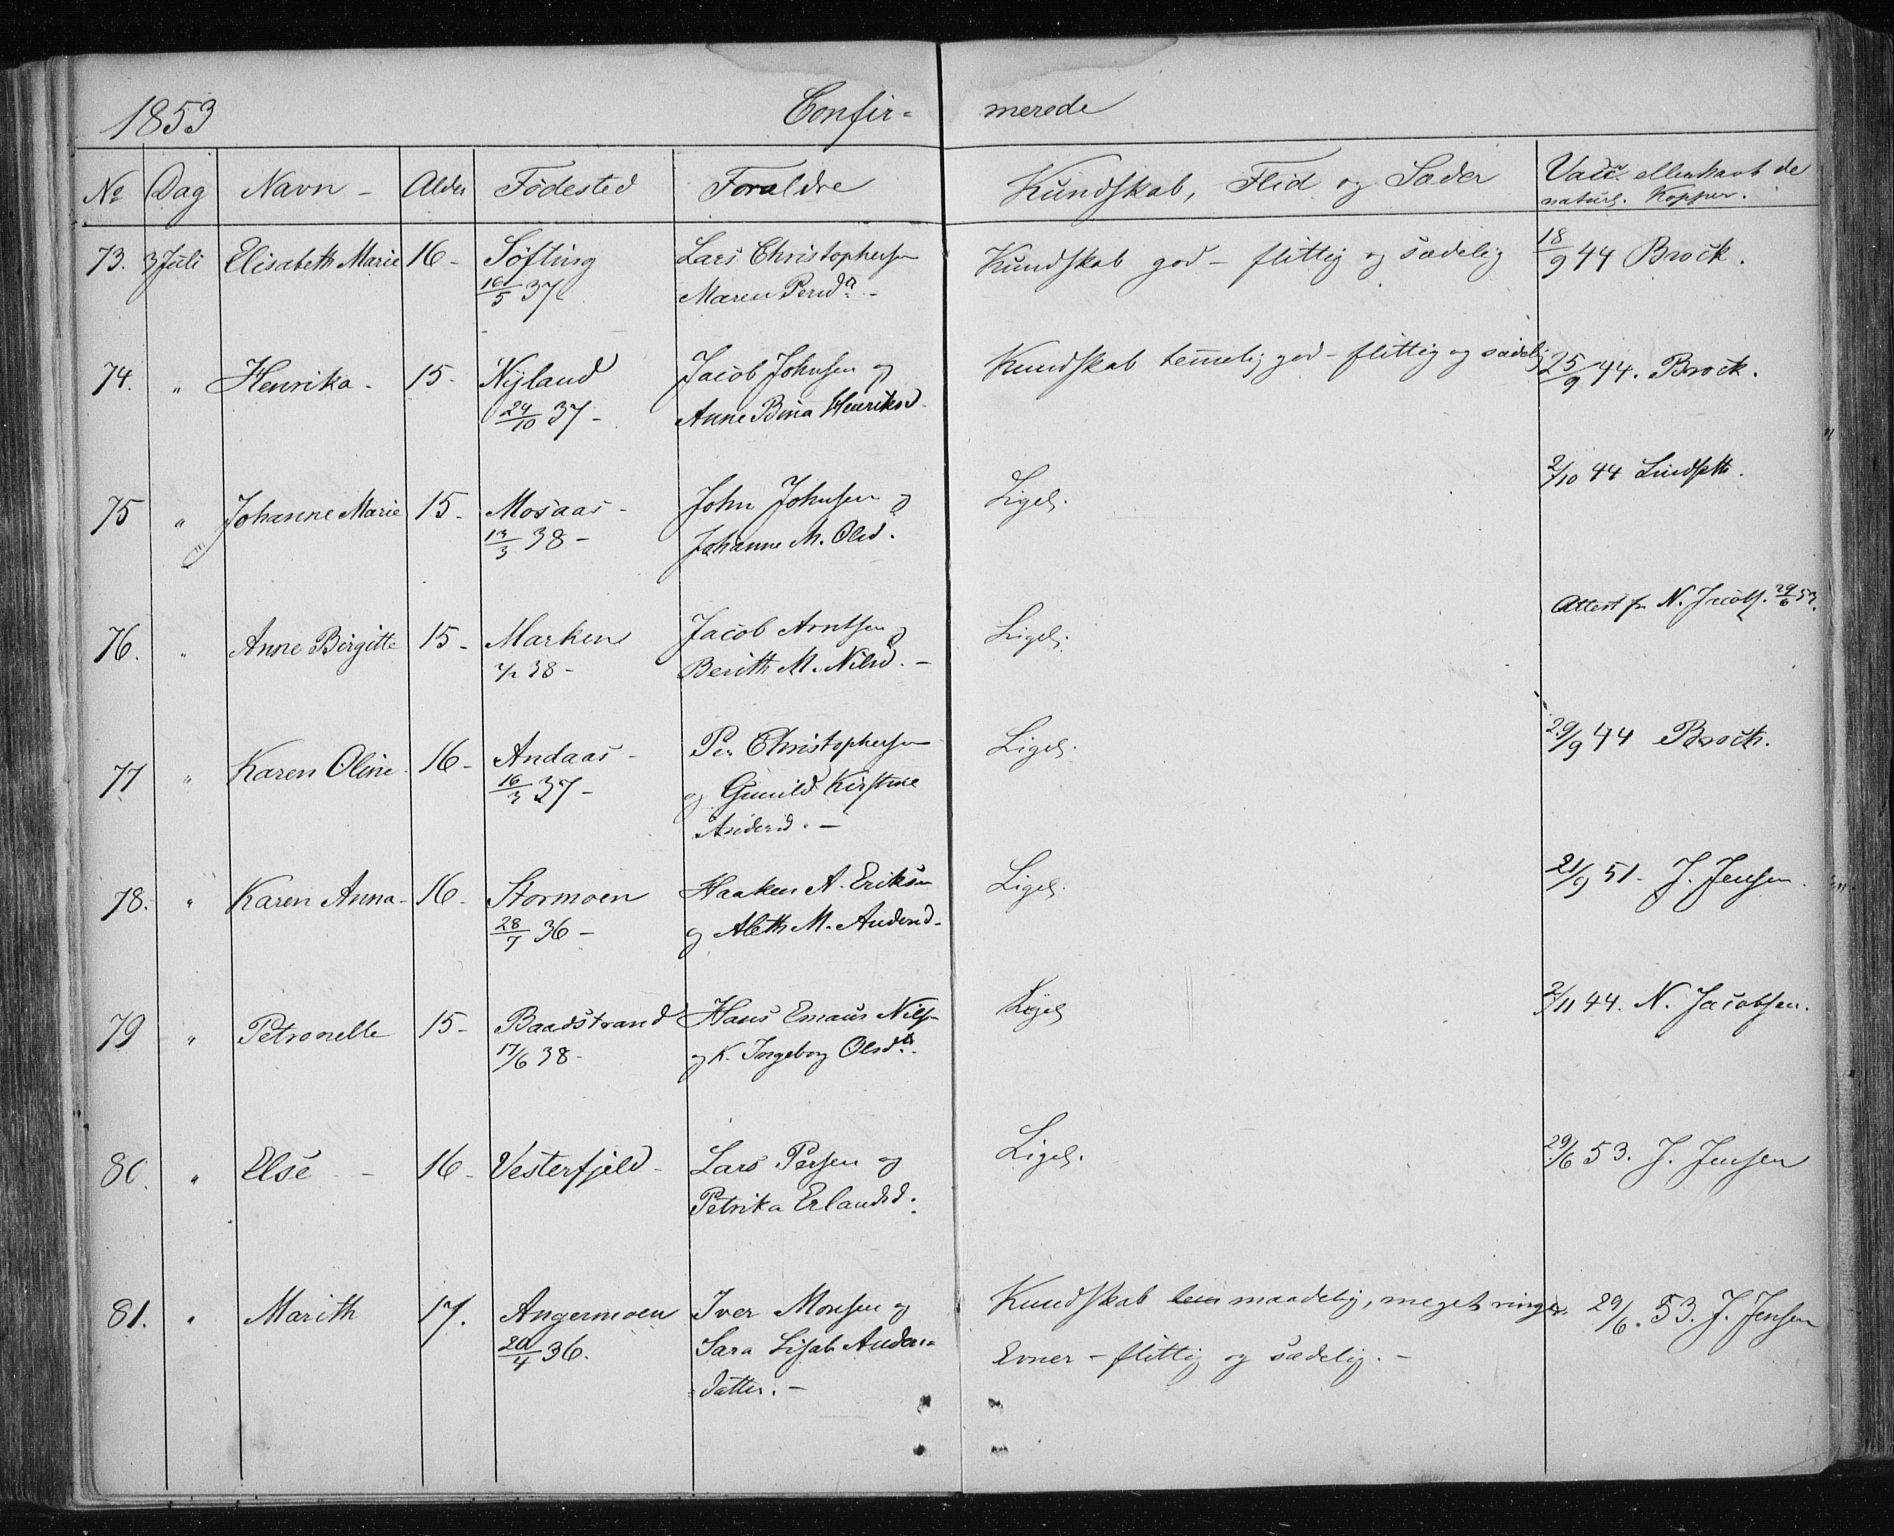 1853 Confir= merede
No Dag Navn - Alder Födested Forældre Kundskab, Flid og Sæder Vacc. eller havt de
naturl. Kopper.
73. 3 Juli Elisabeth Marie 16 - Söfting Lars Christophersen Kundskab god - flittig og sædelig 18/9 44 Brock.
16/5 37 Maren Persd. -
74. " Henrika - 15 - Nyland Jacob Johnsen og Kundskab temmelig god - flittig og sædelig 25/9 44. Brock.
24/10 37 - Anne Bina Henriksd.
75 " Johanne Marie 15 - Mosaas - John Johnsen og Ligel. 2/10 44 Lindseth.
13/3 38 - Johanne M. Olsd.
76. " Anne Birgitte 15 - Marken Jacob Arntsen og Ligel. Attest fr N. Jacobs. 29/6 53.
38 - Berith M. Nilsd. -
77 " Karen Oline 16 - Andaas - Per Christophersen Ligel. 29/9 44 Brock.
16/3 37 - og Gunild Kirstine
Andersd. -
78. " Karen Anna - 16 - Stormoen Haaken A. Eriksen Ligel. 21/9 51 - J. Jensen.
28/7 36 - og Aleth M. Andersd.
79 " Petronelle 15 - Baadstrand Hans Emaus Nils- Ligel 2/11 44. N. Jacobsen.
17/6 38 - og K. Ingeborg Olsd.
80. " Else - 16 - Vesterfjeld - Lars Persen og Ligel. 29/6 53. J. Jensen
Petrika Erlandsd.
81. " Marith 17. Angermoen Iver Monsen og Kundskab tem maadelig, meget ringe 29/6. 53. J. Jensen
20/4 36. Sara Lisab. Anders= Evner - flittig og sædelig. -
=datter. -